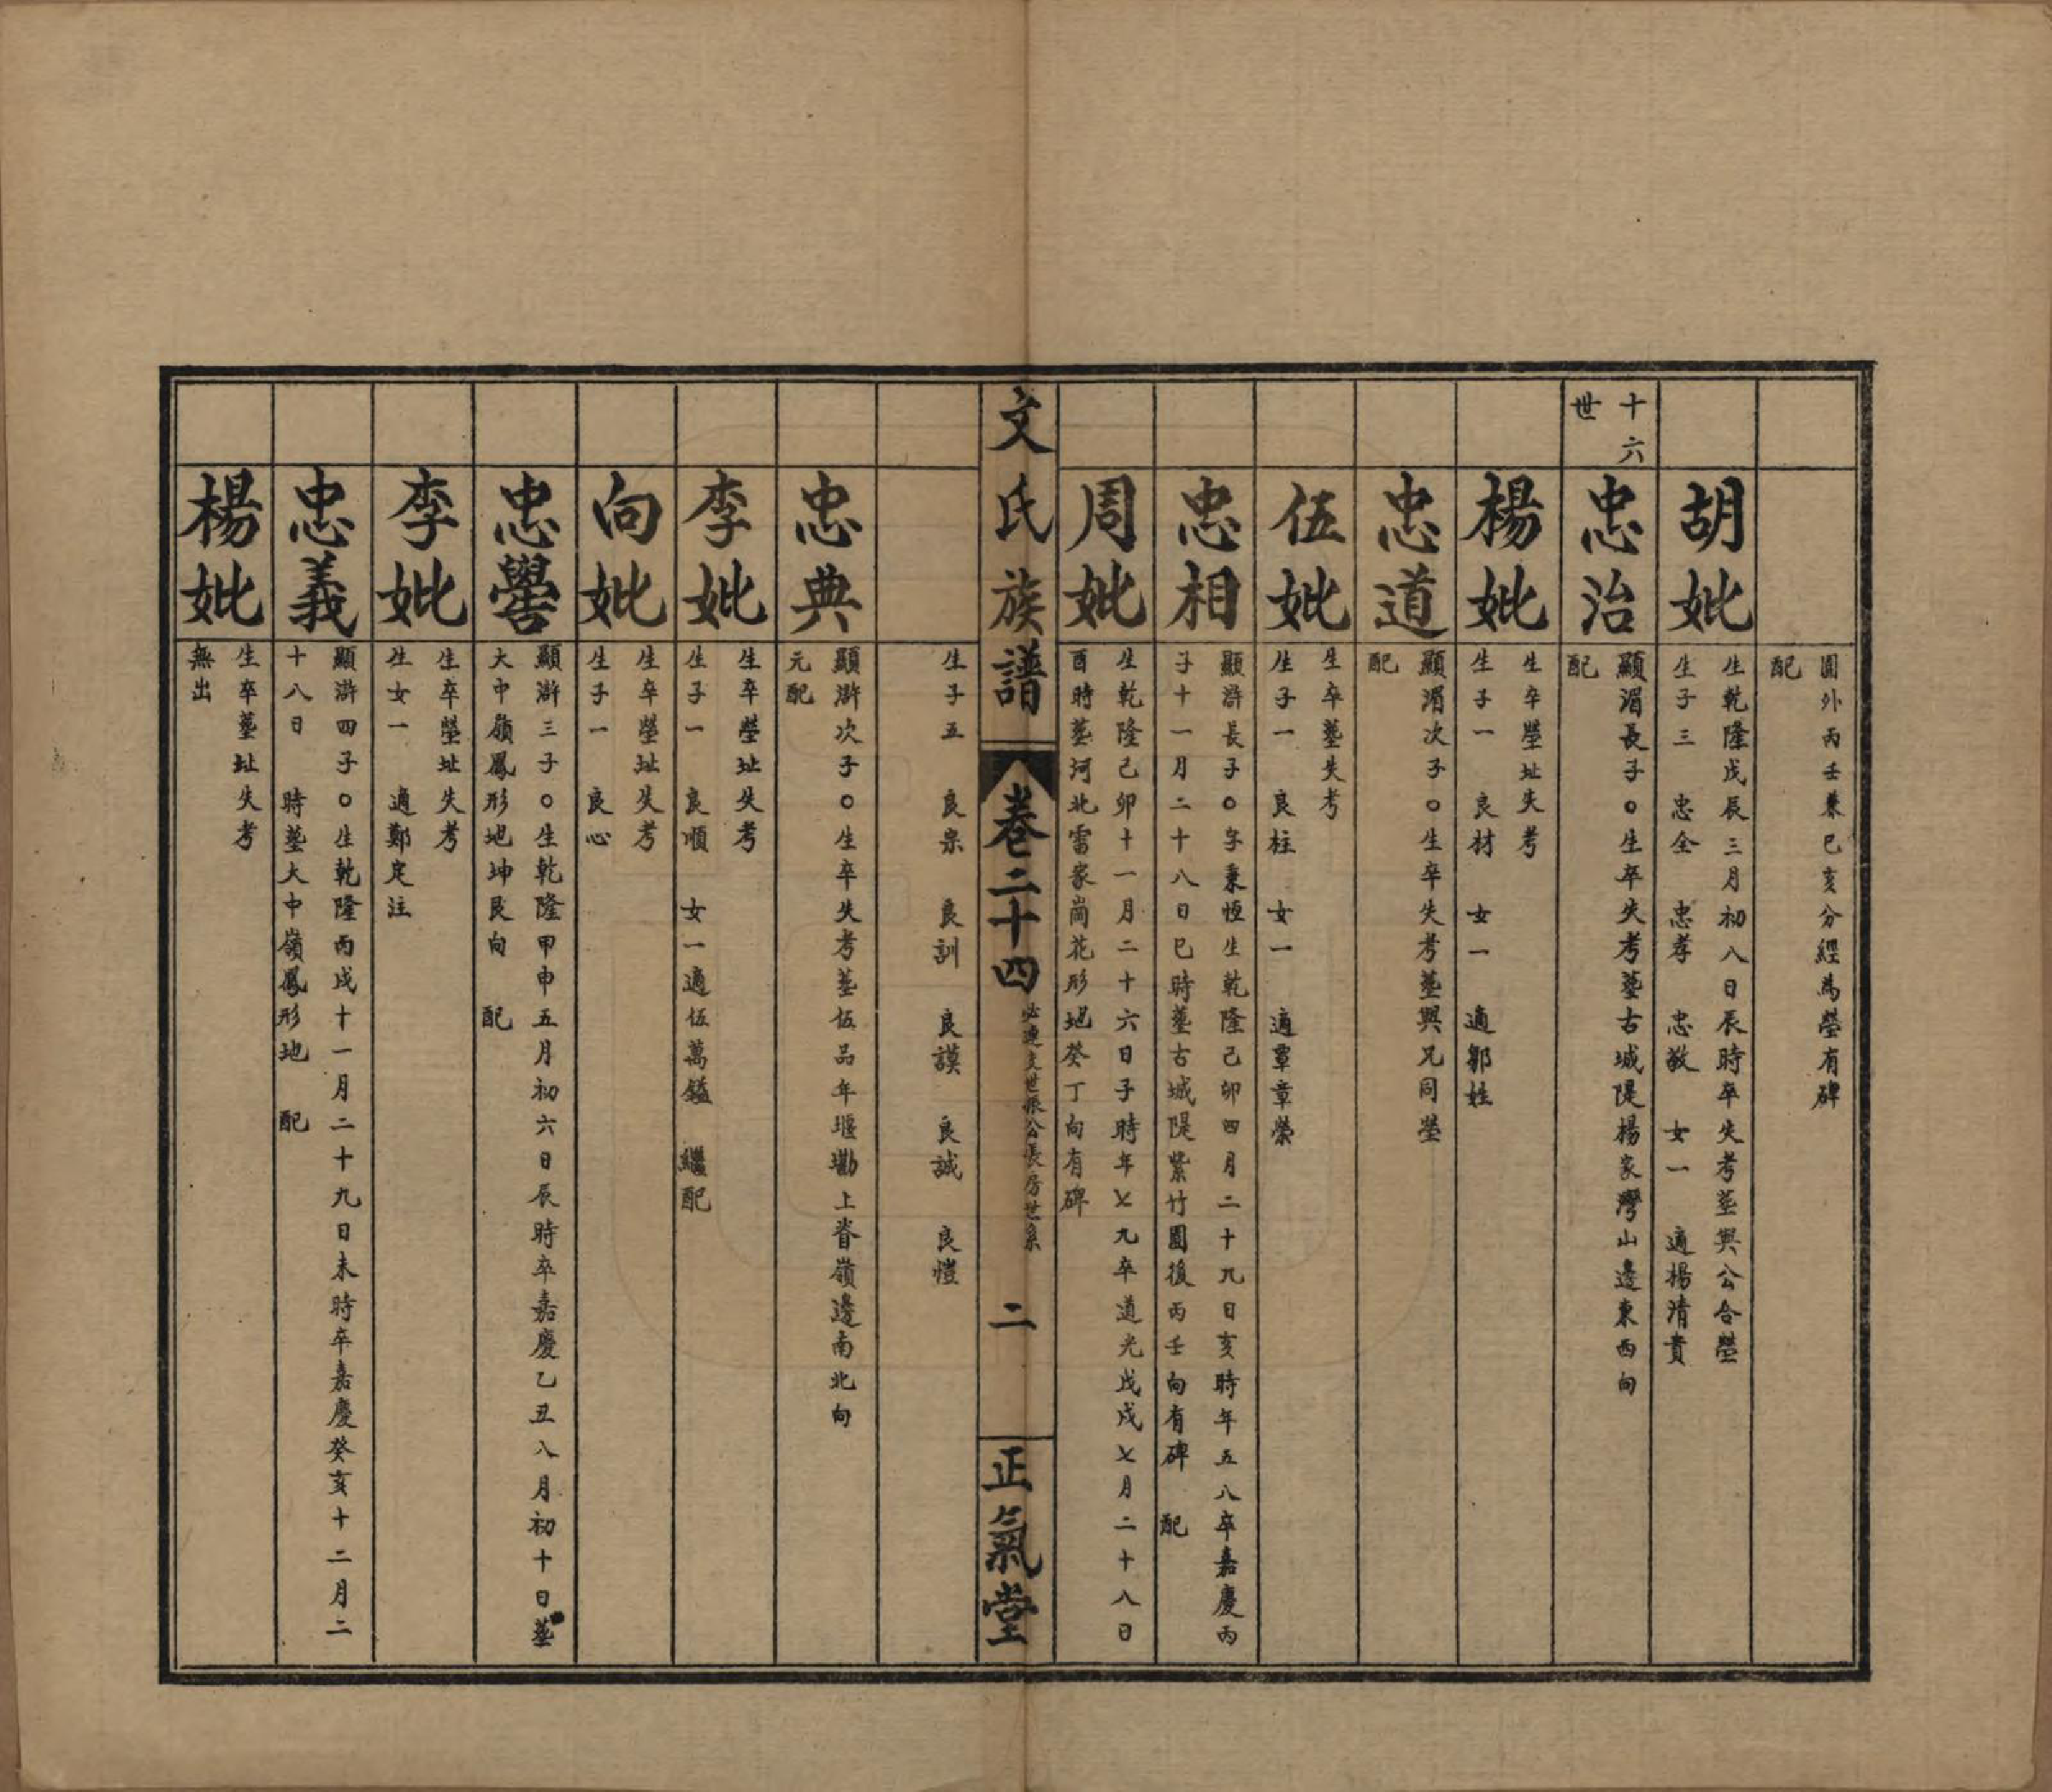 圓外丙壬兼巳亥分經為塋有碑
配
胡妣
生乾隆戊辰三月初八日辰時卒失考塟與公合塋
生子三 忠全 忠孝 忠敬 女一 適楊清貴
十六
世
忠治
顯湄長子○生卒失考塟古城隄楊家灣山邊東西向
配
楊妣
生卒塋址失考
生子一 良材 女一 適鄒姓
忠道
顯湄次子○生卒失考塟與兄同塋
配
伍妣
生卒塟失考
生子一 良柱 女一 適覃章榮
忠相
顯滸長子○字秉恆生乾隆己卯四月二十九日亥時年五八卒嘉慶丙
子十一月二十八日巳時塟古城隄紫竹園後丙壬向有碑 配
周妣
生乾隆己卯十一月二十六日子時年七九卒道光戊戌七月二十八日
酉時塟河北雷家崗花形地癸丁向有碑
文氏族譜
卷二十四
必達支世振公長房世系
二
正氣堂
生子五 良宗 良訓 良謨 良誠 良愷
忠典
顯滸次子○生卒失考塟伍品年堰墈上眷嶺邊南北向
元配
李妣
生卒塋址失考
生子一 良順 女一適伍萬鎰 繼配
向妣
生卒塋址失考
生子一 良心
忠譽
顯滸三子○生乾隆甲申五月初六日辰時卒嘉慶乙丑八月初十日塟
大中嶺鳳形地坤艮向 配
李妣
生卒塋址失考
生女一 適鄭定注
忠義
顯滸四子○生乾隆丙戌十一月二十九日未時卒嘉慶癸亥十二月二
十八日 時塟大中嶺鳳形地 配
楊妣
生卒塟址失考
無出